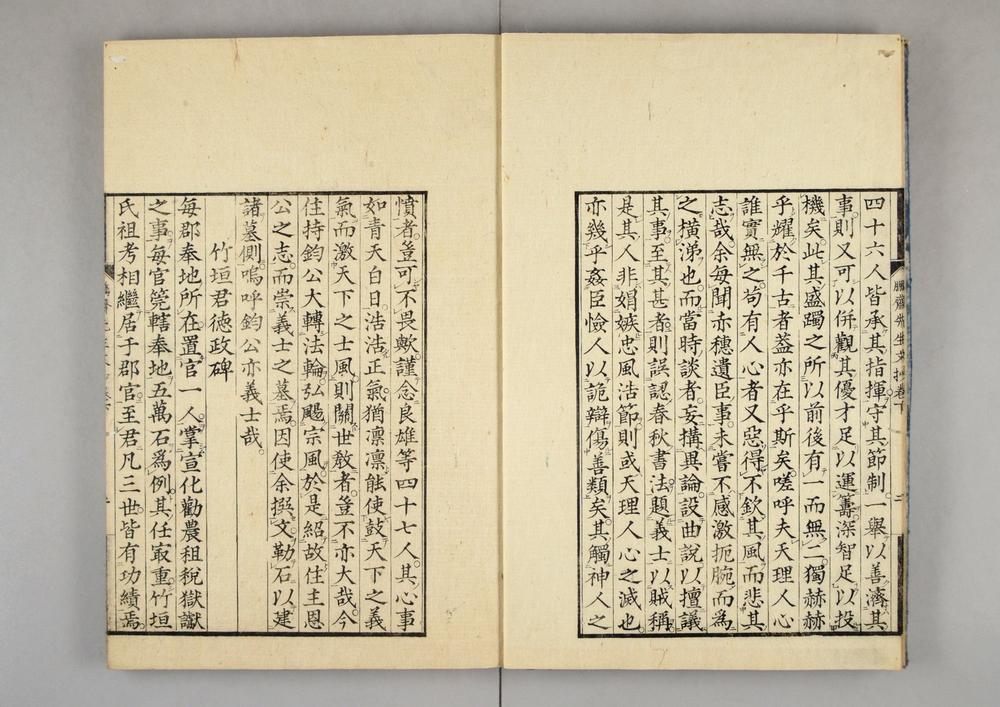 四十六人皆承其指揮守其節制一舉以善濟其
事則又可以併觀其優才足以運籌深智足以投
機矣此其盛躅之所以前後有一而無二獨赫赫
乎耀於千古者蓋亦在乎斯矣嗟呼夫天理人心
誰實無之苟有人心者又惡得不欽其風而悲其
志哉余每聞赤穗遺臣事未嘗不感激扼腕而爲
之横涕也而當時談者妄搆異論設曲說以擅議
其事至其甚者則誤認春秋書法題義士以賊稱
是其人非娼嫉忠風沽節則或天理人心之滅也
亦幾乎姦臣憸人以詭辯傷善類矣其觸神人之
憤者豈可不畏歟謹念良雄等四十七人其心事
如青天白日浩浩正氣猶凛凛能使鼓天下之義
氣而激天下之士風則關世教者豈不亦大哉今
住持鈞公大轉法輪弘颺宗風於是紹故住主恩
公之志而崇義士之墓焉因使余撰文勒石以建
諸墓側嗚呼鈞公亦義士哉
竹垣君德政碑
每郡奉地所在置官一人掌宣化勸農租稅獄讞
之事每官筦轄奉地五萬石爲例其任㝡重竹垣
氏祖考相繼居于郡官至君凡三世皆有功績焉